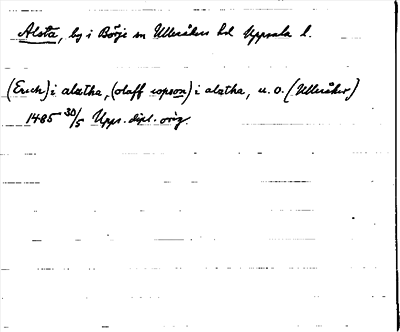 Alsta, by i Börje sn Ulleråkers hd Uppsala l.
(Erich) i alatha, (olaff iopson) i alatha, u. o. (Ulleråker)
1485 30/5 Upps. dipl. orig.